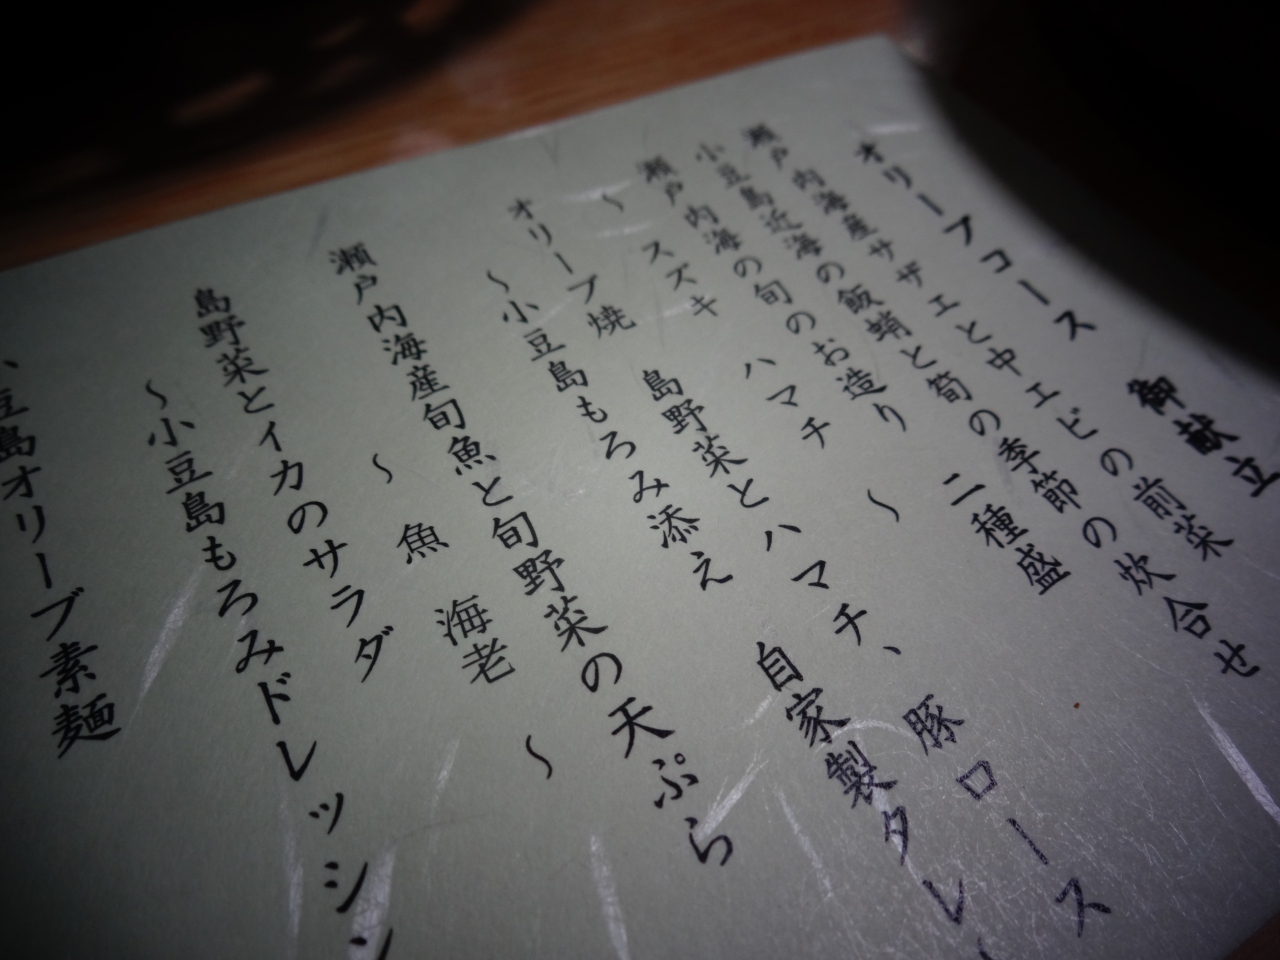 オリーブコース 御献立
瀬戸内海産サザエと中エビの前菜
小豆島近海の飯蛸と筍の季節の炊合せ
瀬戸内海の旬のお造り 二種盛
〜 スズキ ハマチ 〜
オリーブ焼 島野菜とハマチ、豚ロース
〜小豆島もろみ添え 自家製タレ〜
瀬戸内海産旬魚と旬野菜の天ぷら
〜 魚 海老 〜
島野菜とイカのサラダ
〜小豆島もろみドレッシン
小豆島オリーブ素麺